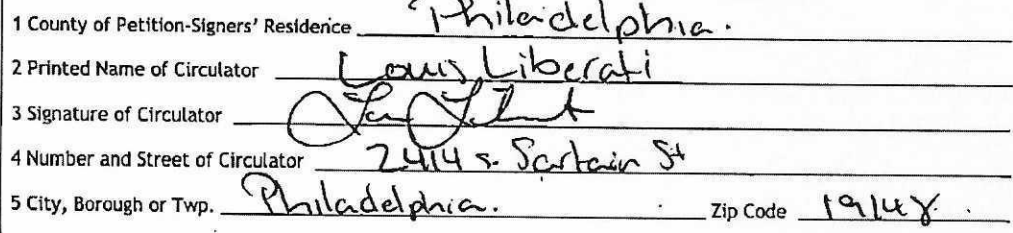 1 County of Petition-Signers' Residence Philadelphia.
2 Printed Name of Circulator Louis Liberati
3 Signature of Circulator
4 Number and Street of Circulator 2414 s. Sartain St
5 City, Borough or Twp. Philadelphia. Zip Code 19148.